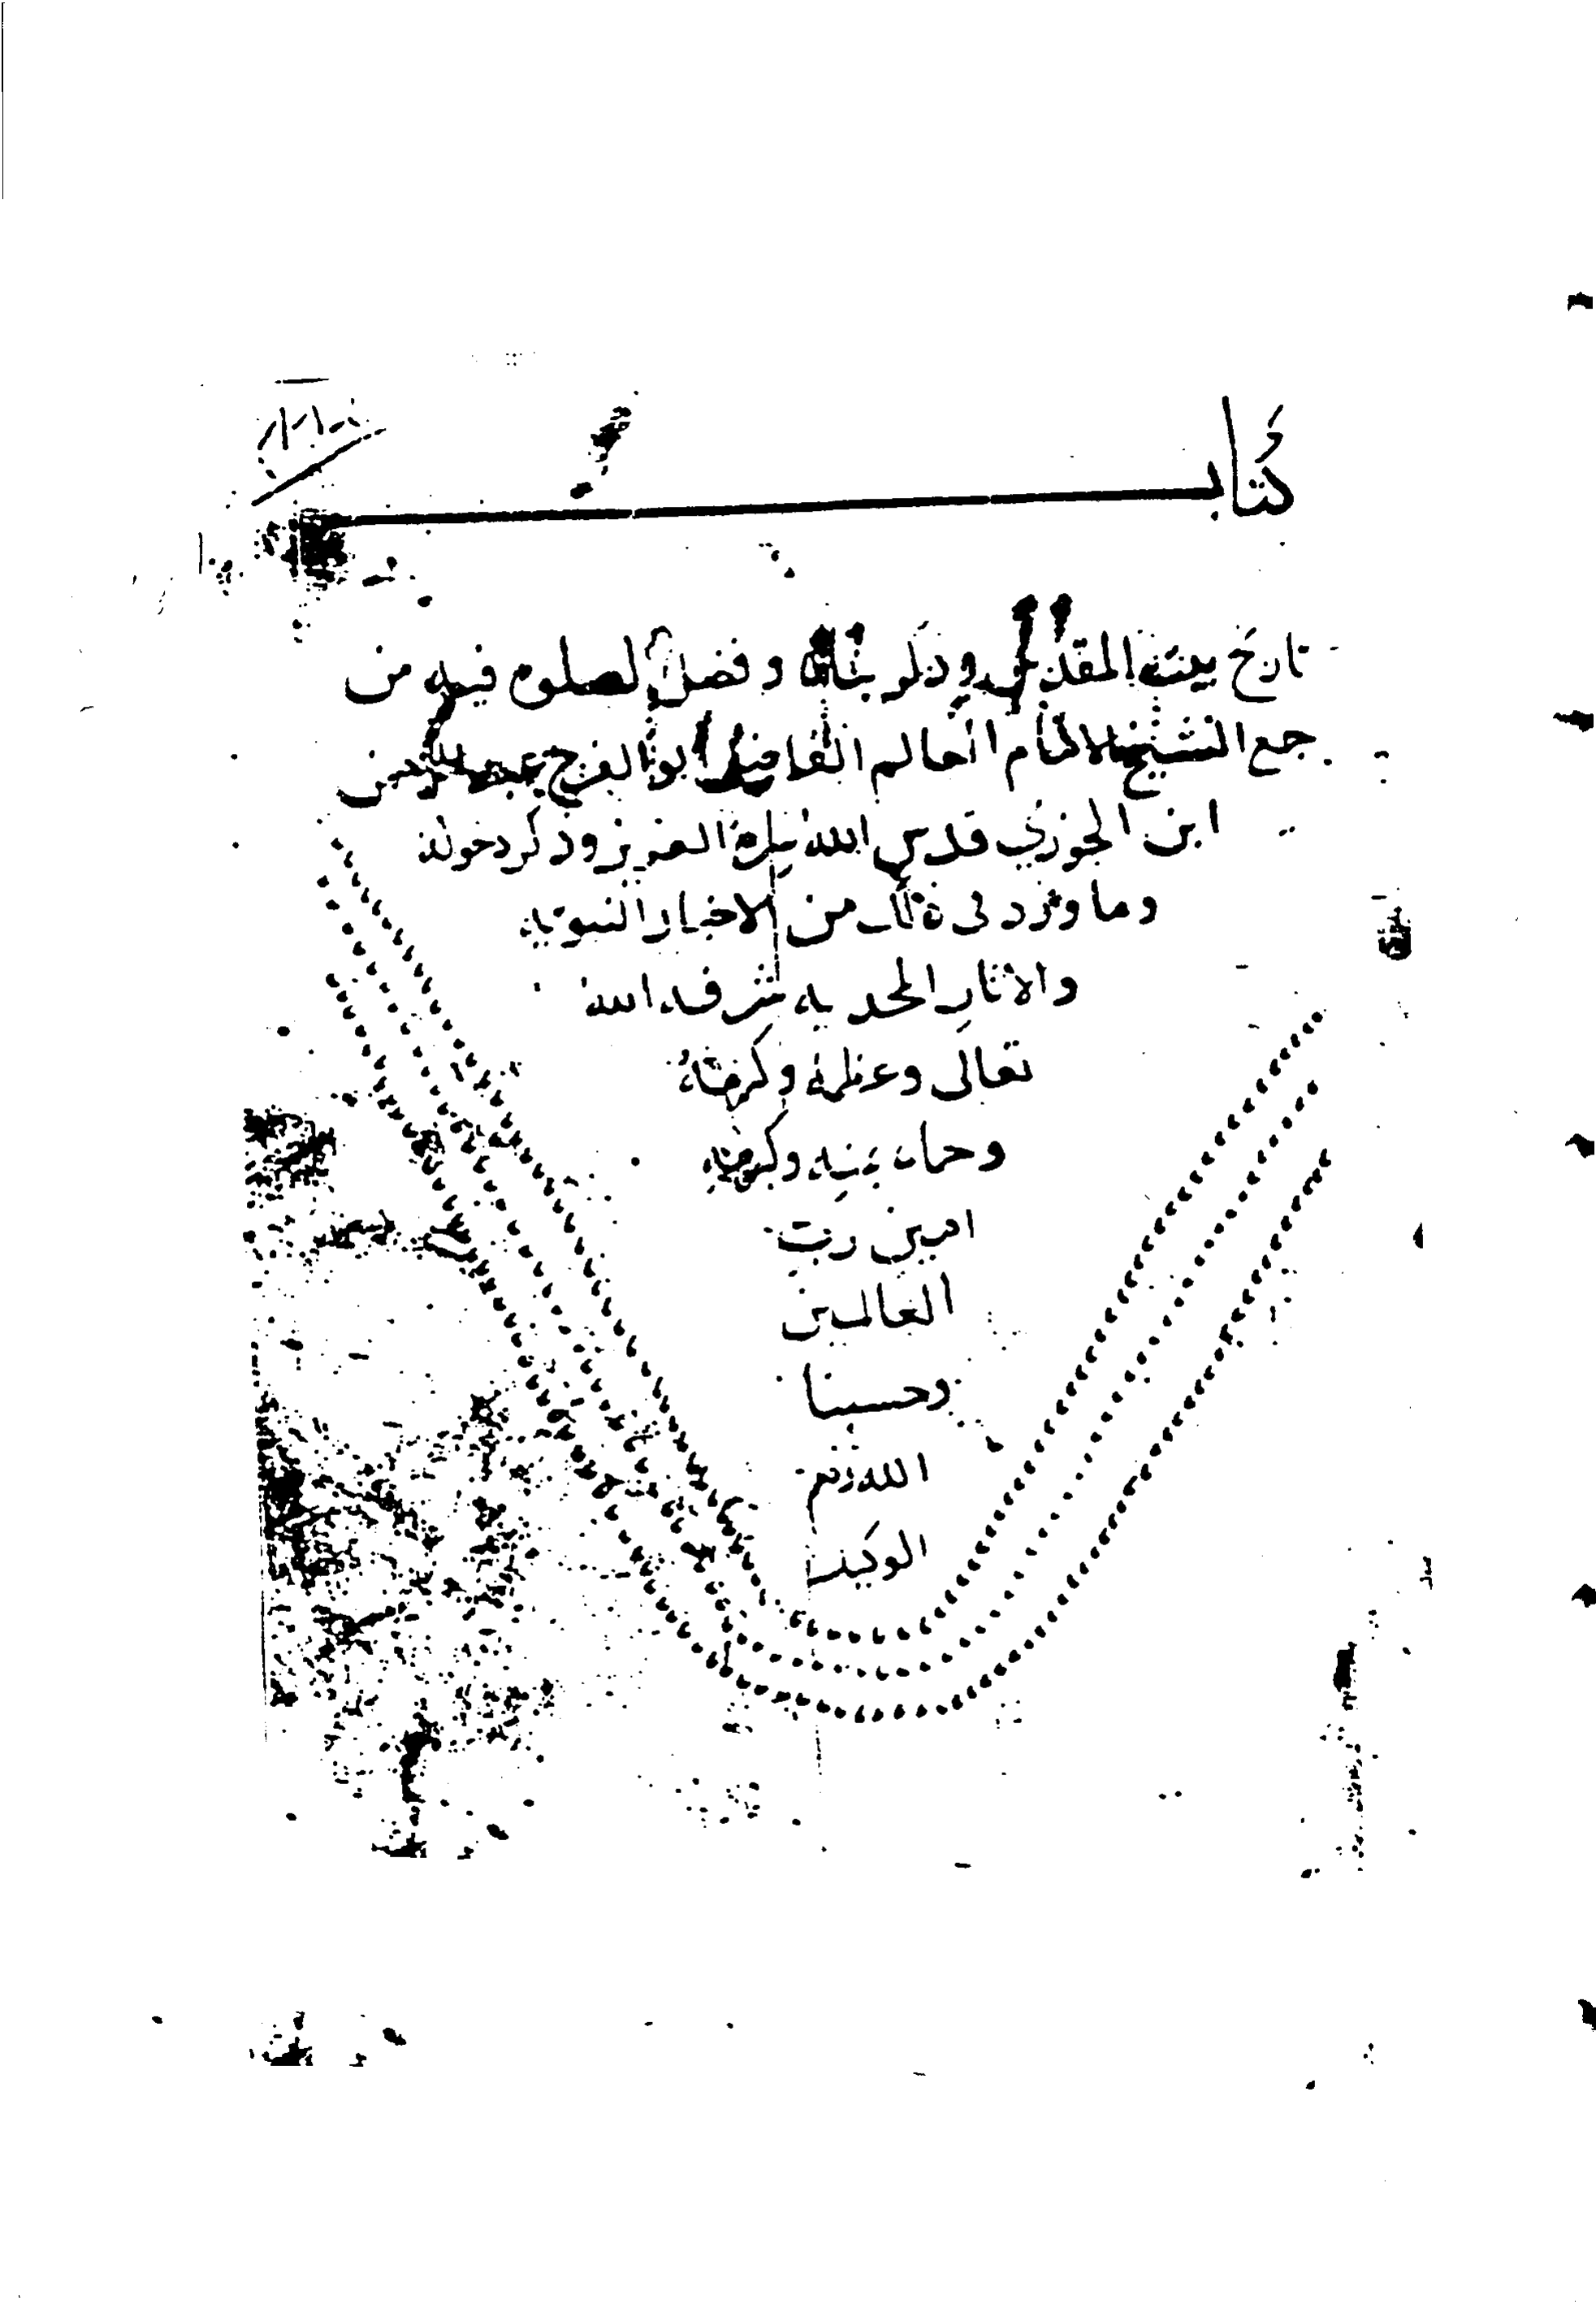 كتاب
تاريخ بيت المقدس وذكر بنائه وفضل الصلوه فيه من
جمع الشيخ الامام العالم الفاضل ابو الفرج عبد الرحمن
ابن الجوزي قدس الله سره العزيز وذكر دخوله
وما ورد في ذلك من الاخبار النبويه
والاثار المحمديه شرفه الله
تعالى وعظمه وكرمه
وحماه بمنه وكرمه
امين رب
العالمين
وحسبنا
الله ونعم
الوكيل